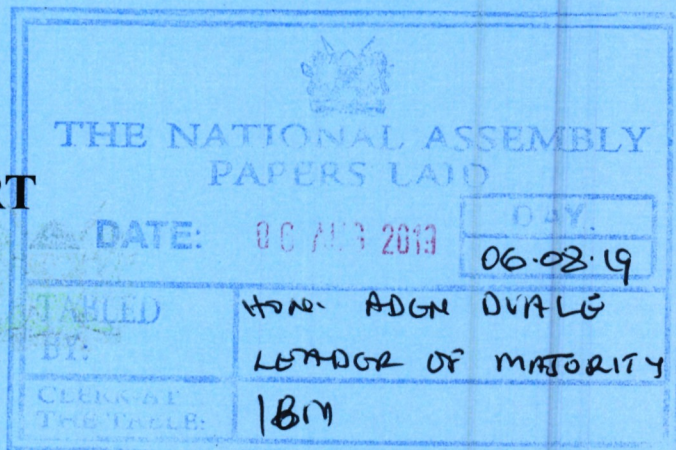 THE NATIONAL ASSEMBLY
PAPERS LAID
RT
DATE: 06 AUG 2019 DAY.
06.08.19
TABLED BY: HON. ADEN DUALE
LEADER OF MAJORITY
CLERK AT THE TABLE: